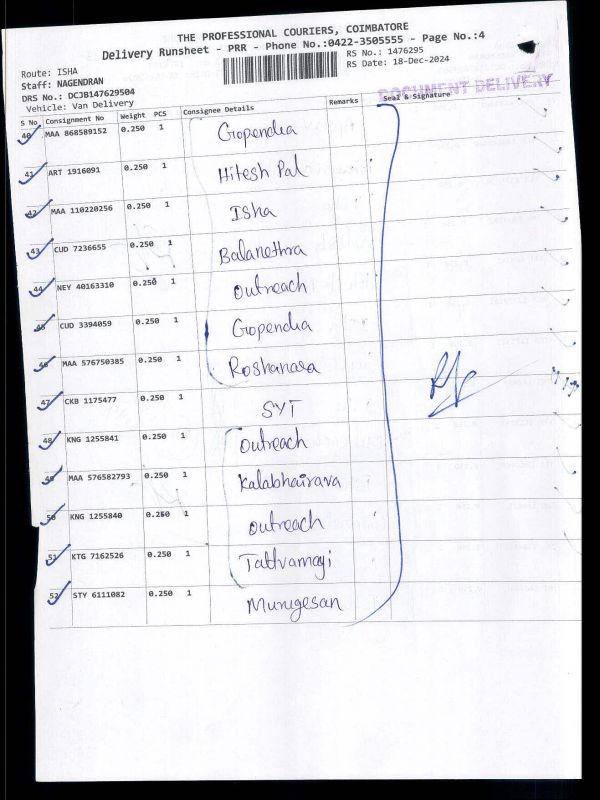 THE PROFESSIONAL COURIERS, COIMBATORE
Delivery Runsheet - PRR - Phone No.:0422-3505555 - Page No.:4
Route: ISHA
RS No.: 1476295
Staff: NAGENDRAN
RS Date: 18-Dec-2024
DRS No.: DCJB147629504
DOCUMENT DELIVERY
Vehicle: Van Delivery
S No Consignment No Weight PCS Consignee Details Remarks Seal & Signature
40 MAA 868589152 0.250 1 Gopendra
41 ART 1916091 0.250 1 Hitesh Pal
42 MAA 110220256 0.250 1 Isha
43 CUD 7236655 0.250 1 Balanethra
44 NEY 40163310 0.250 1 Outreach
45 CUD 3394059 0.250 1 Gopendra
46 MAA 576750385 0.250 1 Roshanara
47 CKB 1175477 0.250 1 SYT
48 KNG 1255841 0.250 1 Outreach
49 MAA 576582793 0.250 1 Kalabhairava
50 KNG 1255840 0.250 1 Outreach
51 KTG 7162526 0.250 1 Tattvamayi
52 STY 6111082 0.250 1 Murugesan